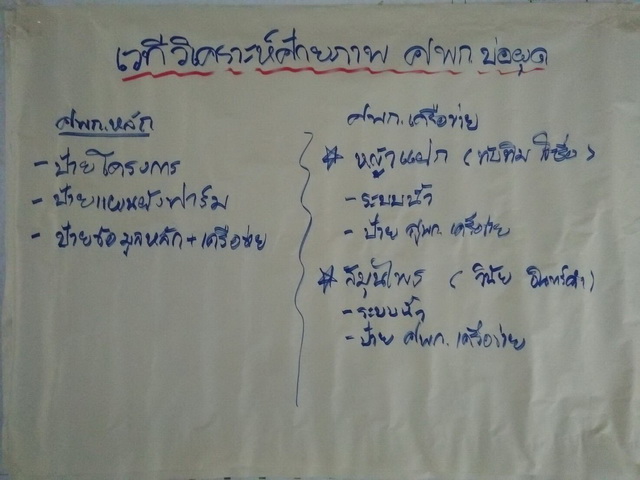 เวทีวิเคราะห์ศักยภาพ ศพก.บ่อยุด
ศพก.หลัก
- ป้ายโครงการ
- ป้ายแผนผังฟาร์ม
- ป้ายข้อมูลหลัก+เครือข่าย
ศพก.เครือข่าย
* หญ้าแฝก (ทับทิม
- ระบบน้ำ
- ป้าย ศพก. เครือข่าย
* สมุนไพร (วินัย
- ระบบน้ำ
- ป้าย ศพก. เครือข่าย